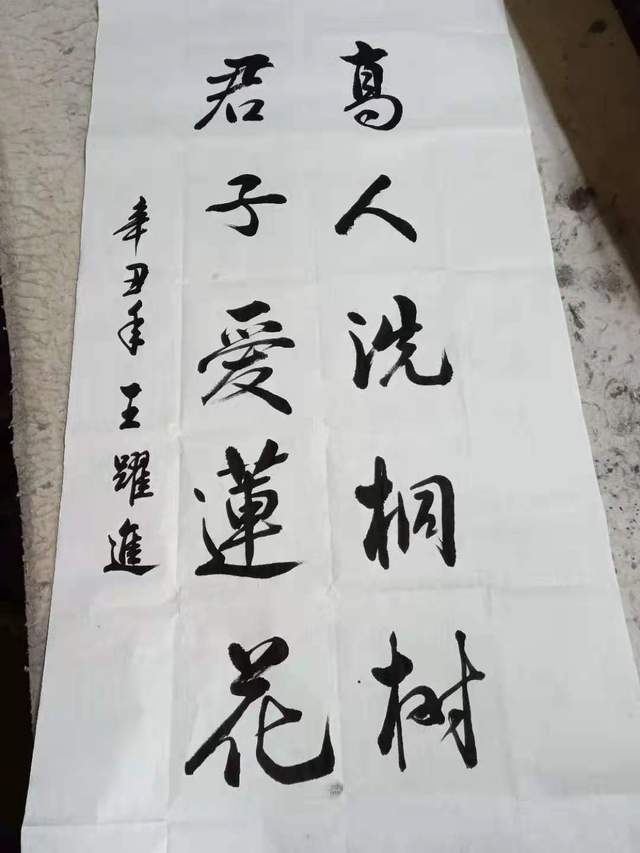 高人洗桐树
君子爱蓮花
辛丑年王躍進